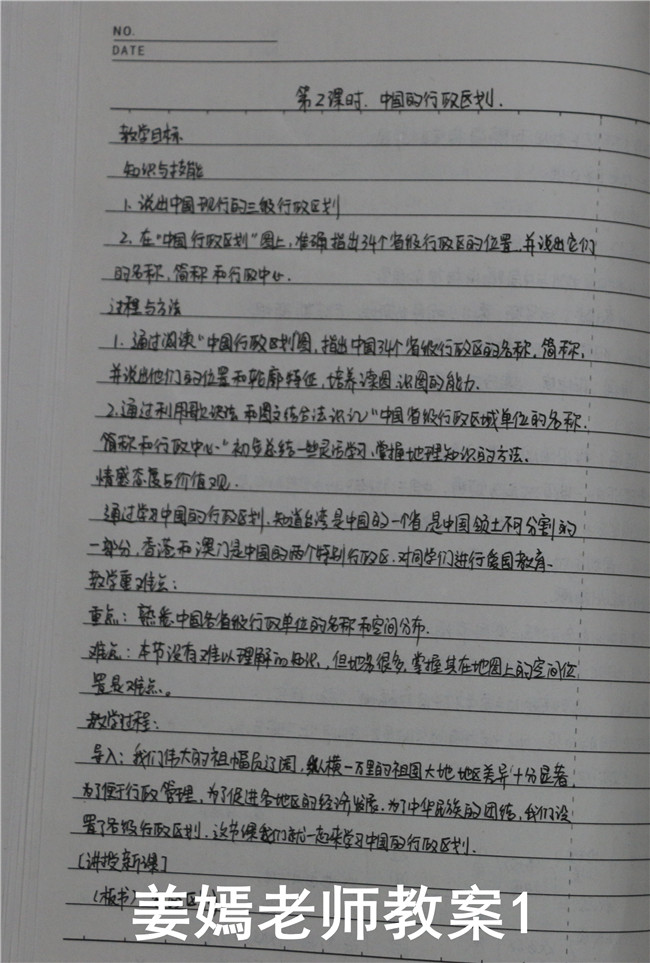 NO.
DATE
第2课时、中国的行政区划.
教学目标
知识与技能
1、说出中国现行的三级行政区划
2、在"中国行政区划"图上,准确指出34个省级行政区的位置,并说出它们
的名称,简称和行政中心.
过程与方法
1、通过阅读"中国行政区划图,指出中国34个省级行政区的名称,简称,
并说出他们的位置和轮廓特征,培养读图,识图的能力.
2、通过利用歌诀法和图文结合法识记"中国省级行政区域单位的名称.
简称和行政中心."初步总结一些灵活学习,掌握地理知识的方法.
情感态度与价值观.
通过学习中国的行政区划,知道台湾是中国的一个省,是中国领土不可分割的
一部分,香港和澳门是中国的两个特别行政区.对同学们进行爱国教育.
教学重难点:
重点:熟悉中国各省级行政单位的名称和空间分布.
难点:本节没有难以理解的知识,但地名很多,掌握其在地图上的空间位
置是难点。
教学过程:
导入:我们伟大的祖幅员辽阔,纵横一万里的祖国大地地区差异十分显著,
为了便于行政管理,为了促进各地区的经济发展.为了中华民族的团结,我们设
置了各级行政区划.这节课我们就一起来学习中国的行政区划.
[讲授新课]
(板书)
姜嫣老师教案1